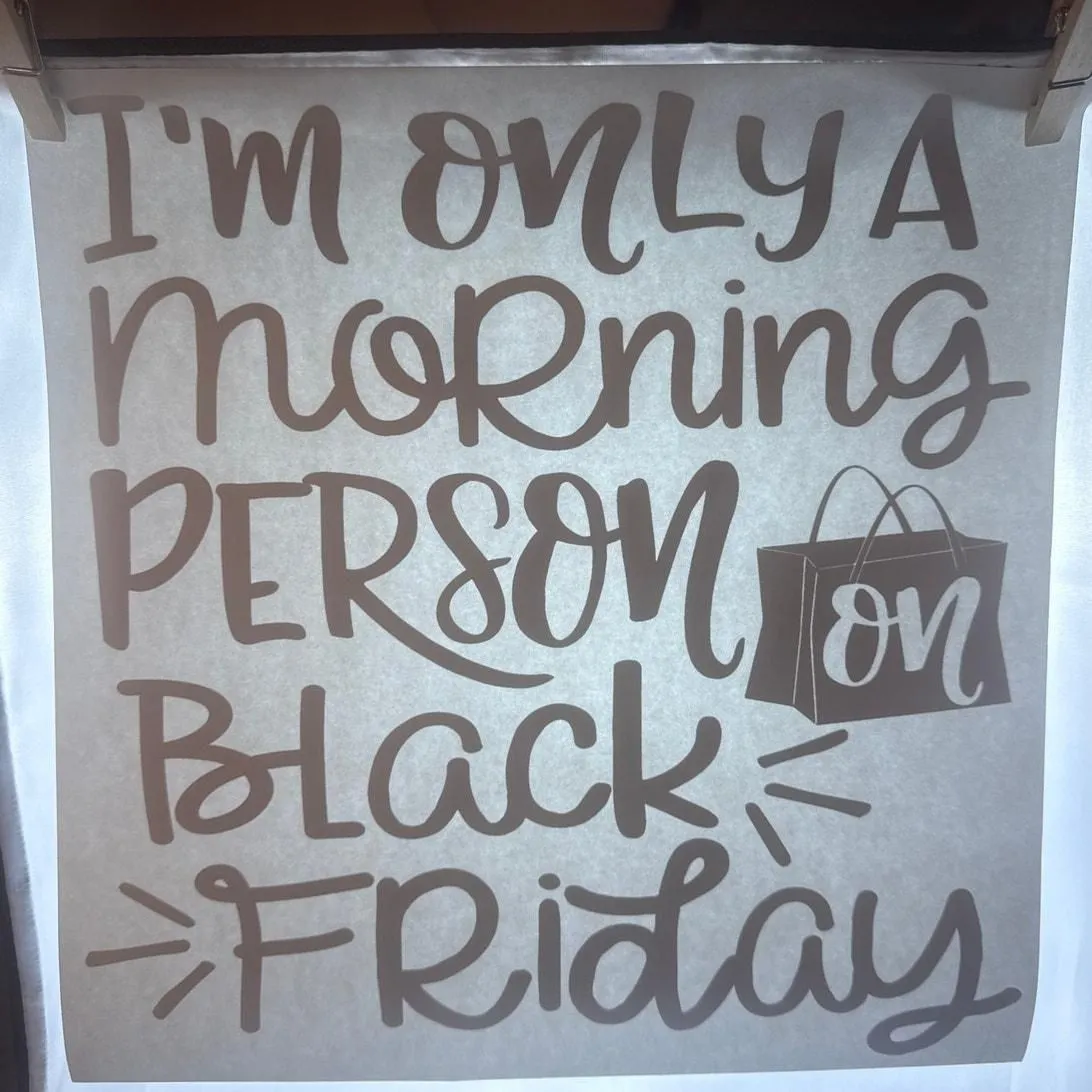 I'm only A
morning
Person on
Black
Friday